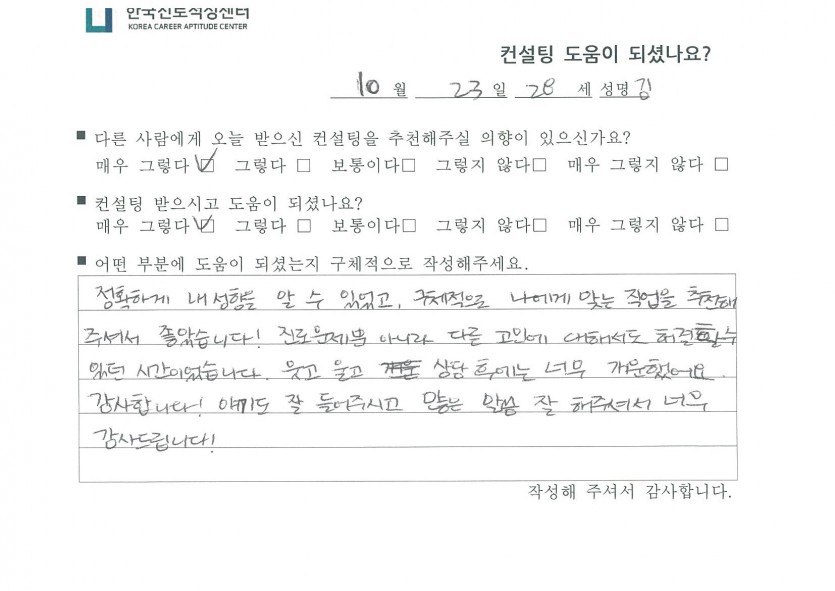 한국진로적성센터
KOREA CAREER APTITUDE CENTER
컨설팅 도움이 되셨나요?
10 월 23 일 28 세 성명 김
■ 다른 사람에게 오늘 받으신 컨설팅을 추천해주실 의향이 있으신가요?
매우 그렇다 ☑ 그렇다 □ 보통이다□ 그렇지 않다□ 매우 그렇지 않다 □
■ 컨설팅 받으시고 도움이 되셨나요?
매우 그렇다 ☑ 그렇다 □ 보통이다□ 그렇지 않다□ 매우 그렇지 않다 □
■ 어떤 부분에 도움이 되셨는지 구체적으로 작성해주세요.
정확하게 내 성향을 알 수 있었고, 구체적으로 나에게 맞는 직업을 추천해
주셔서 좋았습니다! 진로문제뿐 아니라 다른 고민에 대해서도 해결할 수
있던 시간이었습니다. 웃고 울고 상담 후에는 너무 개운했어요.
감사합니다! 얘기도 잘 들어주시고 많은 말씀 잘 해주셔서 너무
감사드립니다!
작성해 주셔서 감사합니다.